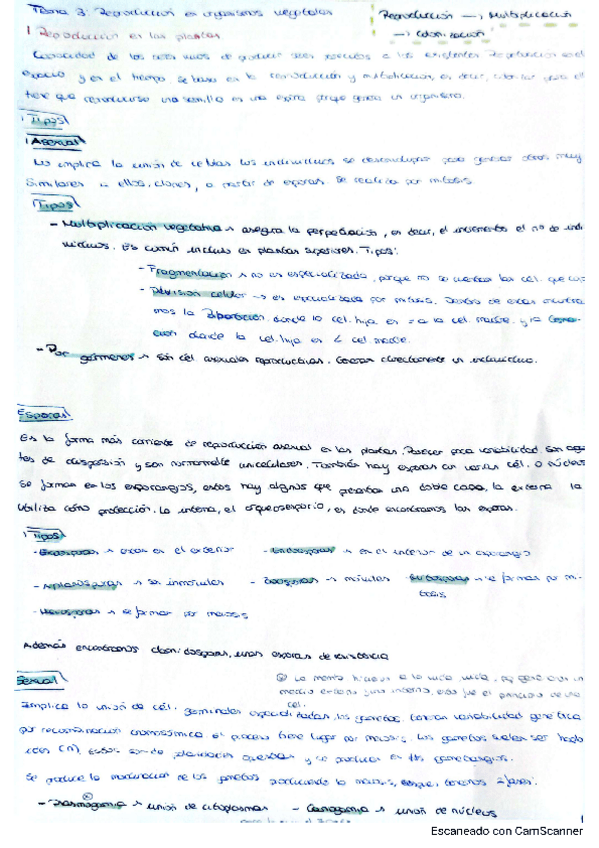 Tema 3: Reproducción en organismos vegetales
Reproducción → Multiplicación
→ Colonización
1 Reproducción en las plantas
Capacidad de los seres vivos de producir seres parecidos a los existentes. Reproducción en el
espacio y en el tiempo. Se basa en la reproducción y multiplicación, es decir,
tiene que reproducirse una semilla es una espora porque genera un organismo.
Tipos
Asexual
No implica la unión de células. Los individuos se desarrollan para generar otros muy
similares a ellos, clones, a partir de esporas. Se realiza por mitosis
Tipos
- Multiplicación vegetativa → asegura la perpetuación, es decir, el incremento el nº de indi
viduos. Es común incluso en plantas superiores. Tipos:
- Fragmentación → no es especializada, porque no se cuentan las cél. que
- División celular → es especializada por mitosis. Dentro de estas encontra
mos la Bipartición, donde la cel. hija es = a la cel. madre. y la Gema-
ción donde la cel. hija es < cel. madre.
- Por gérmenes → son cél. asexuales reproductivas. Generan directamente un individuo.
Esporas
Es la forma más corriente de reproducción asexual en las plantas. Poseer poca variabilidad. Son agen
tes de dispersión y son normalmente unicelulares. También hay esporas con varias cél. o núcleos
Se forman en los esporangios, estos hay algunos que presentan una doble capa, la externa la
utiliza como protección. La interna, el arqueosporio, es donde encontramos las esporas.
Tipos
- Exosporas → están en el exterior - Endosporas → en el interior de un esporangio
- Aplanosporas → son inmóviles - Zoosporas → móviles Mitosporas → se forman por mi-
tosis
- Meiosporas → se forman por meiosis
Además encontramos clamidosporas, unas esporas de resistencia
Sexual
medio externo y uno interno, esto fue el principio de una
cel.
Implica la unión de cél. germinales especializadas, los gametos, con una variabilidad genética
por recombinación cromosómica el proceso tiene lugar por meiosis. Los gametos suelen ser haplo
ides (n). Estos son de y se producen en los gametangios.
Se produce la maduración de los gametos produciendo la meiosis, tenemos 2 fases:
- Plasmogamia → unión de citoplasmas - Cariogamia → unión de núcleos
Escaneado con CamScanner